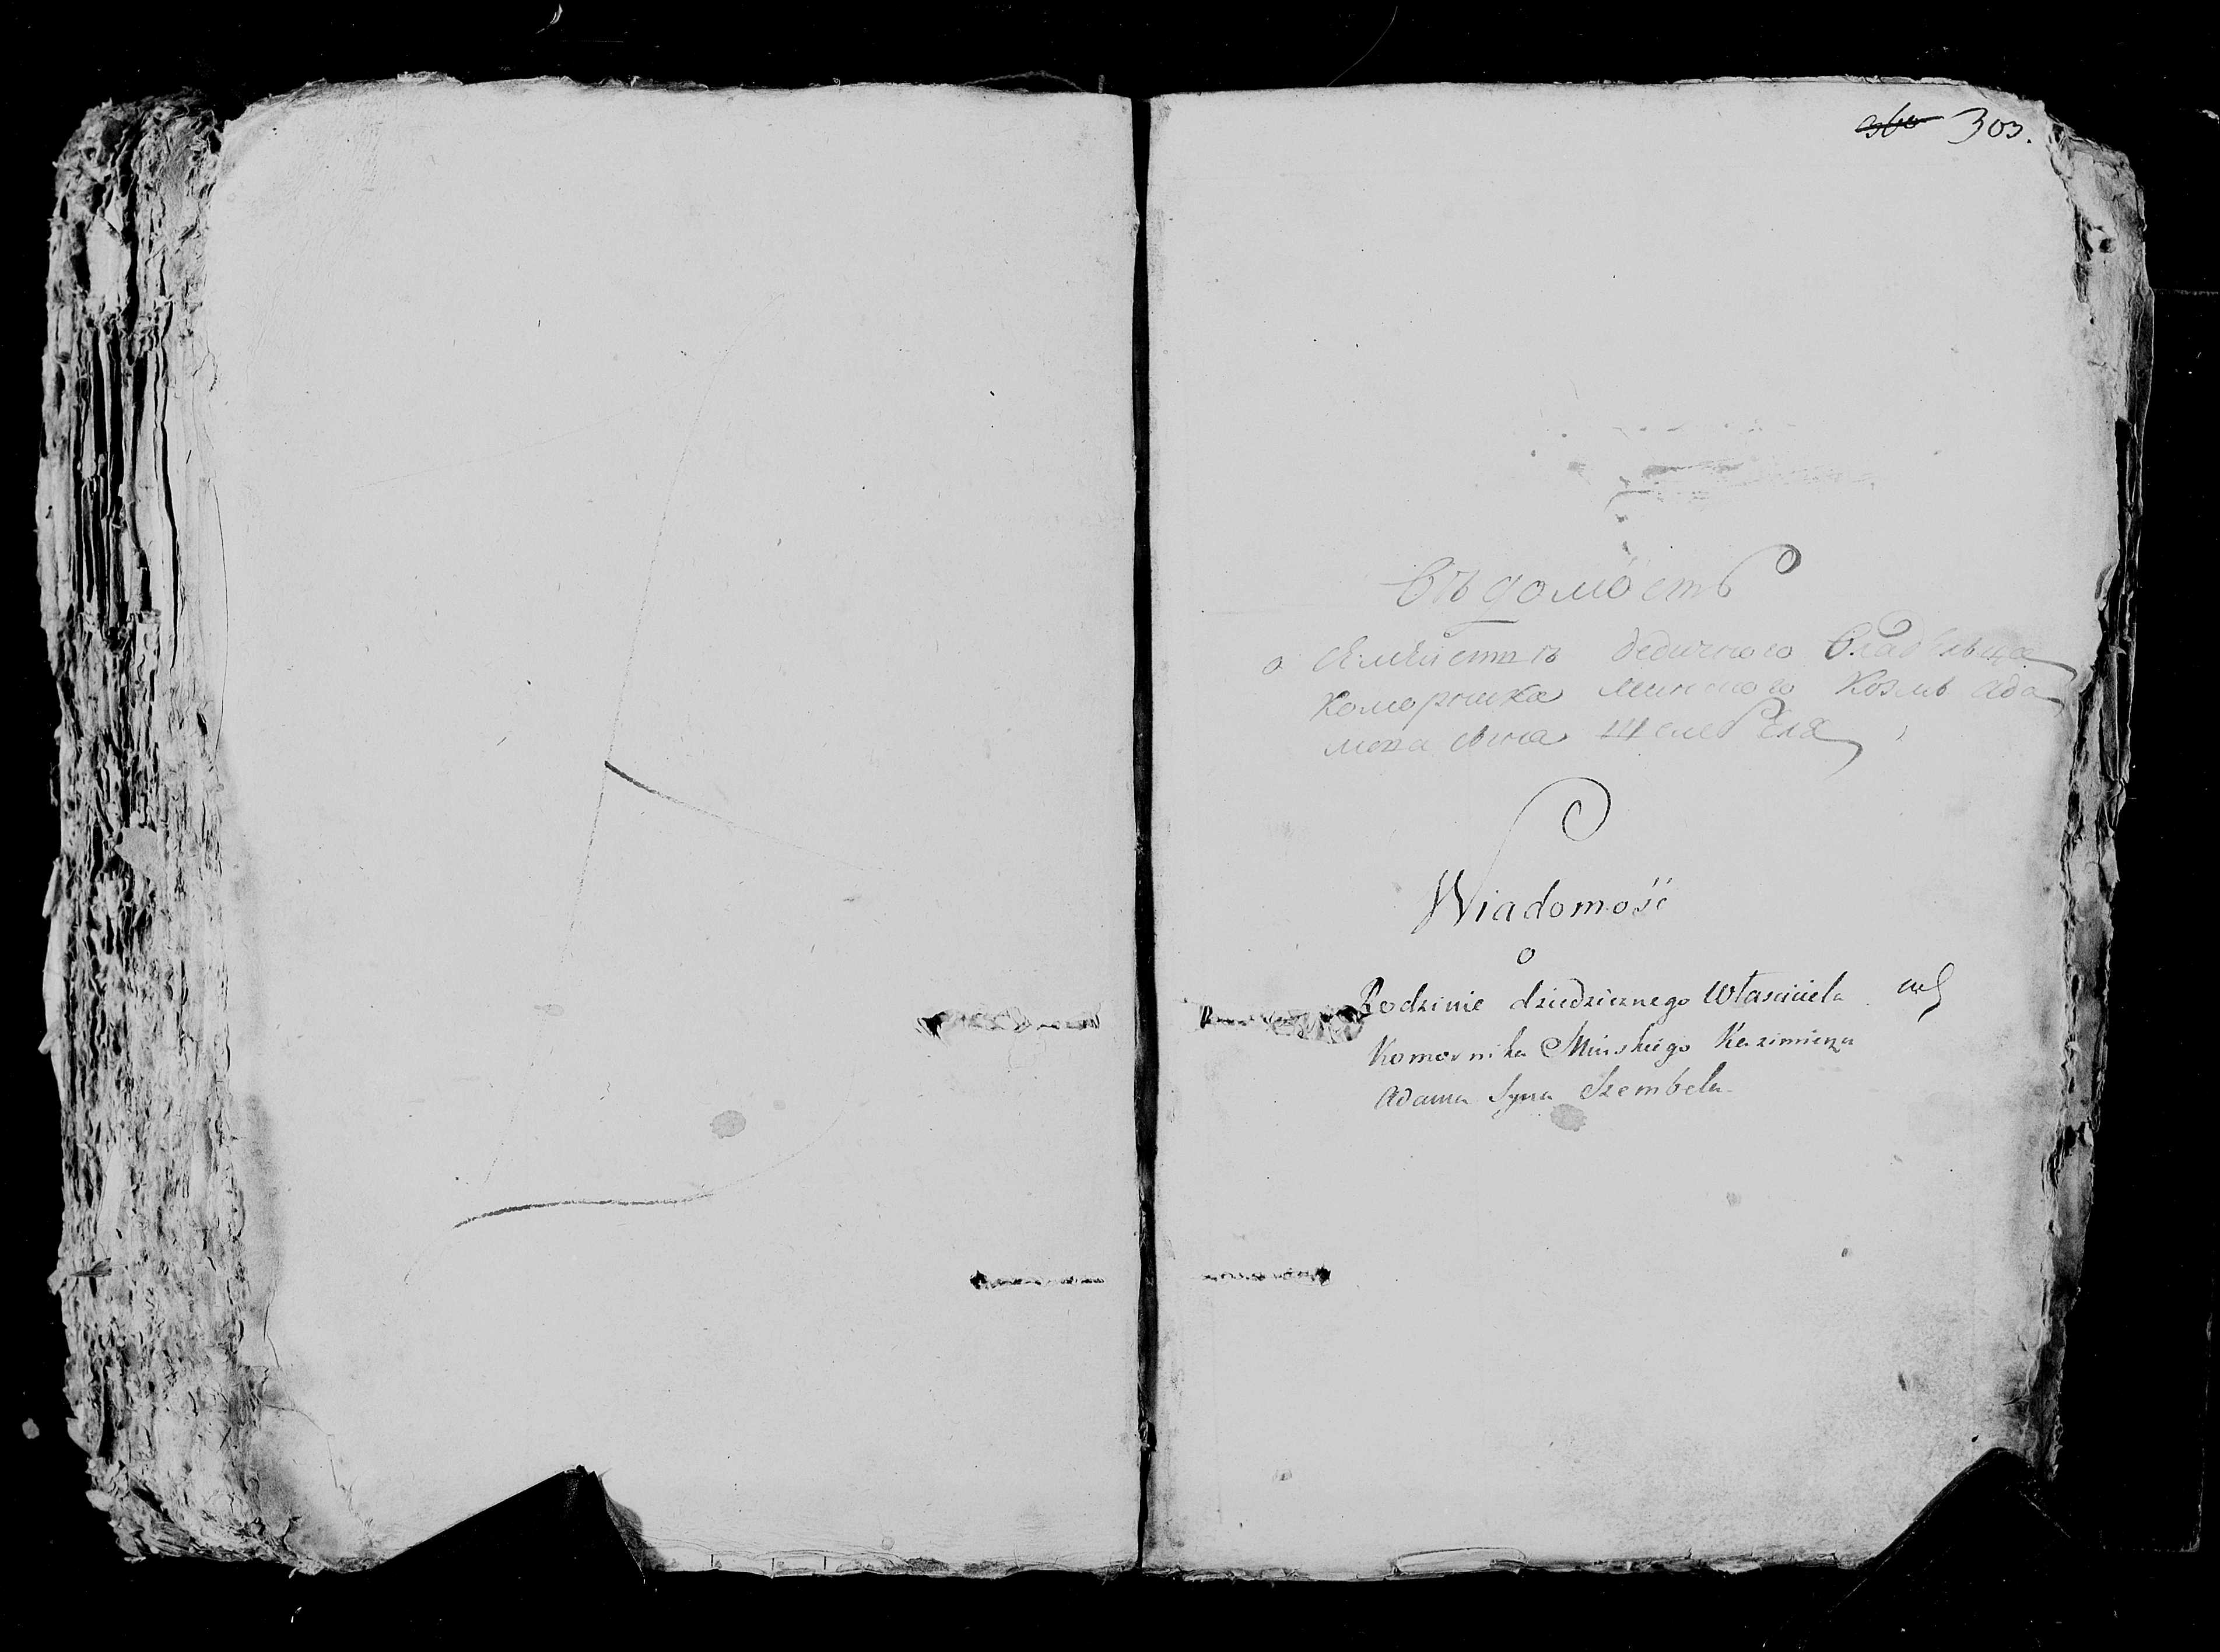 303.
Вѣдомость
о Семействѣ дедичного Владѣльца
Коморника Минского Козмы Ада
мова сына Шембеля
Wiadomość
o
Rodzinie dziedzicznego Własciciela
Komornika Minskiego Kazimierza
Adama Syna Szembela